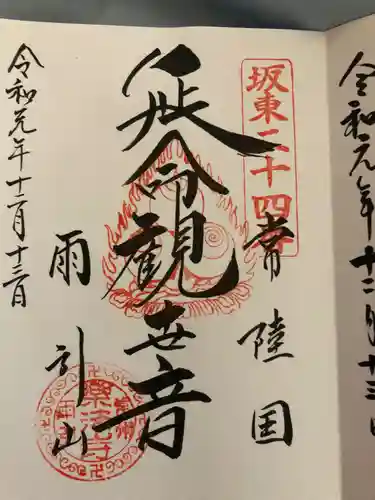 坂東二十四番
常陸国
延命観世音
雨引山
楽法寺
令和元年十二月十三日
令和元年十二月十三日